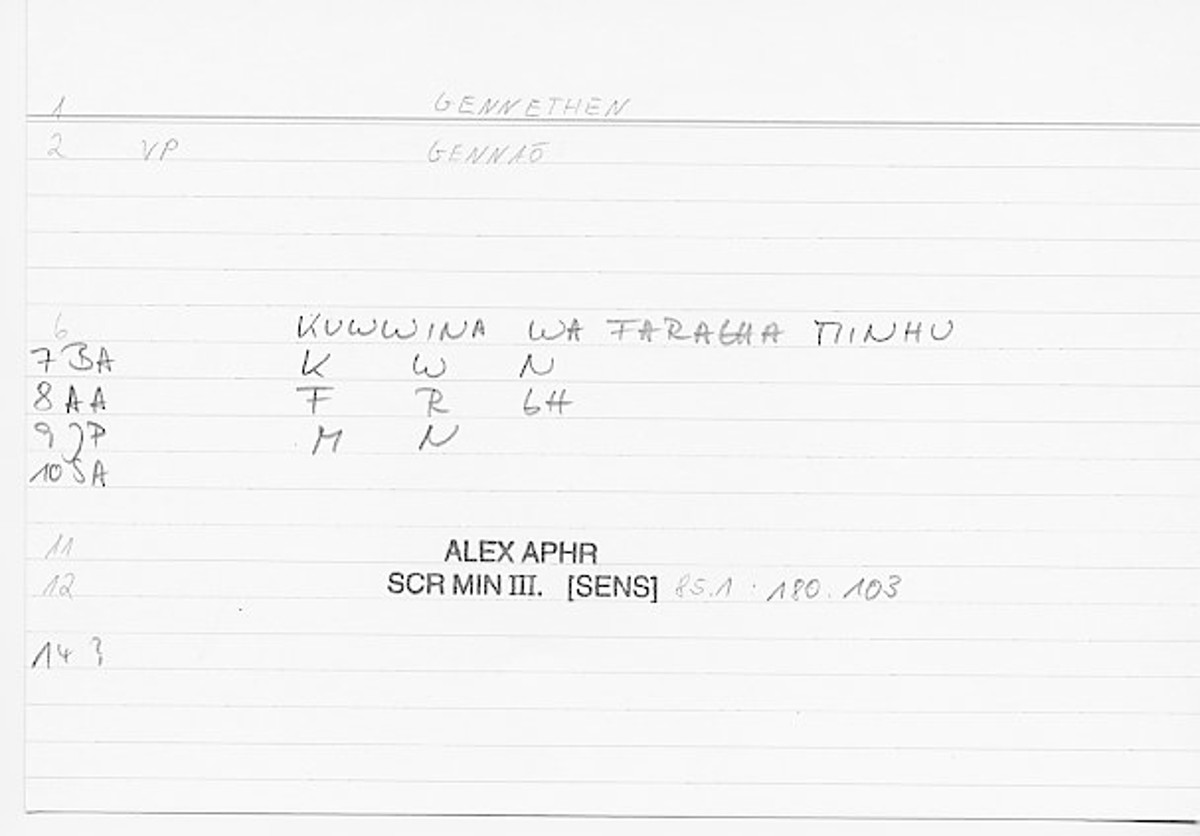 1 GENNETHEN
2 VP GENNAŌ
6 KUWWINA WA FARAGHA MINHU
7 BA K W N
8 AA F R GH
9 JP M N
10 SA
11 ALEX APHR
12 SCR MIN III. [SENS] 85.1 : 180.103
14 ?